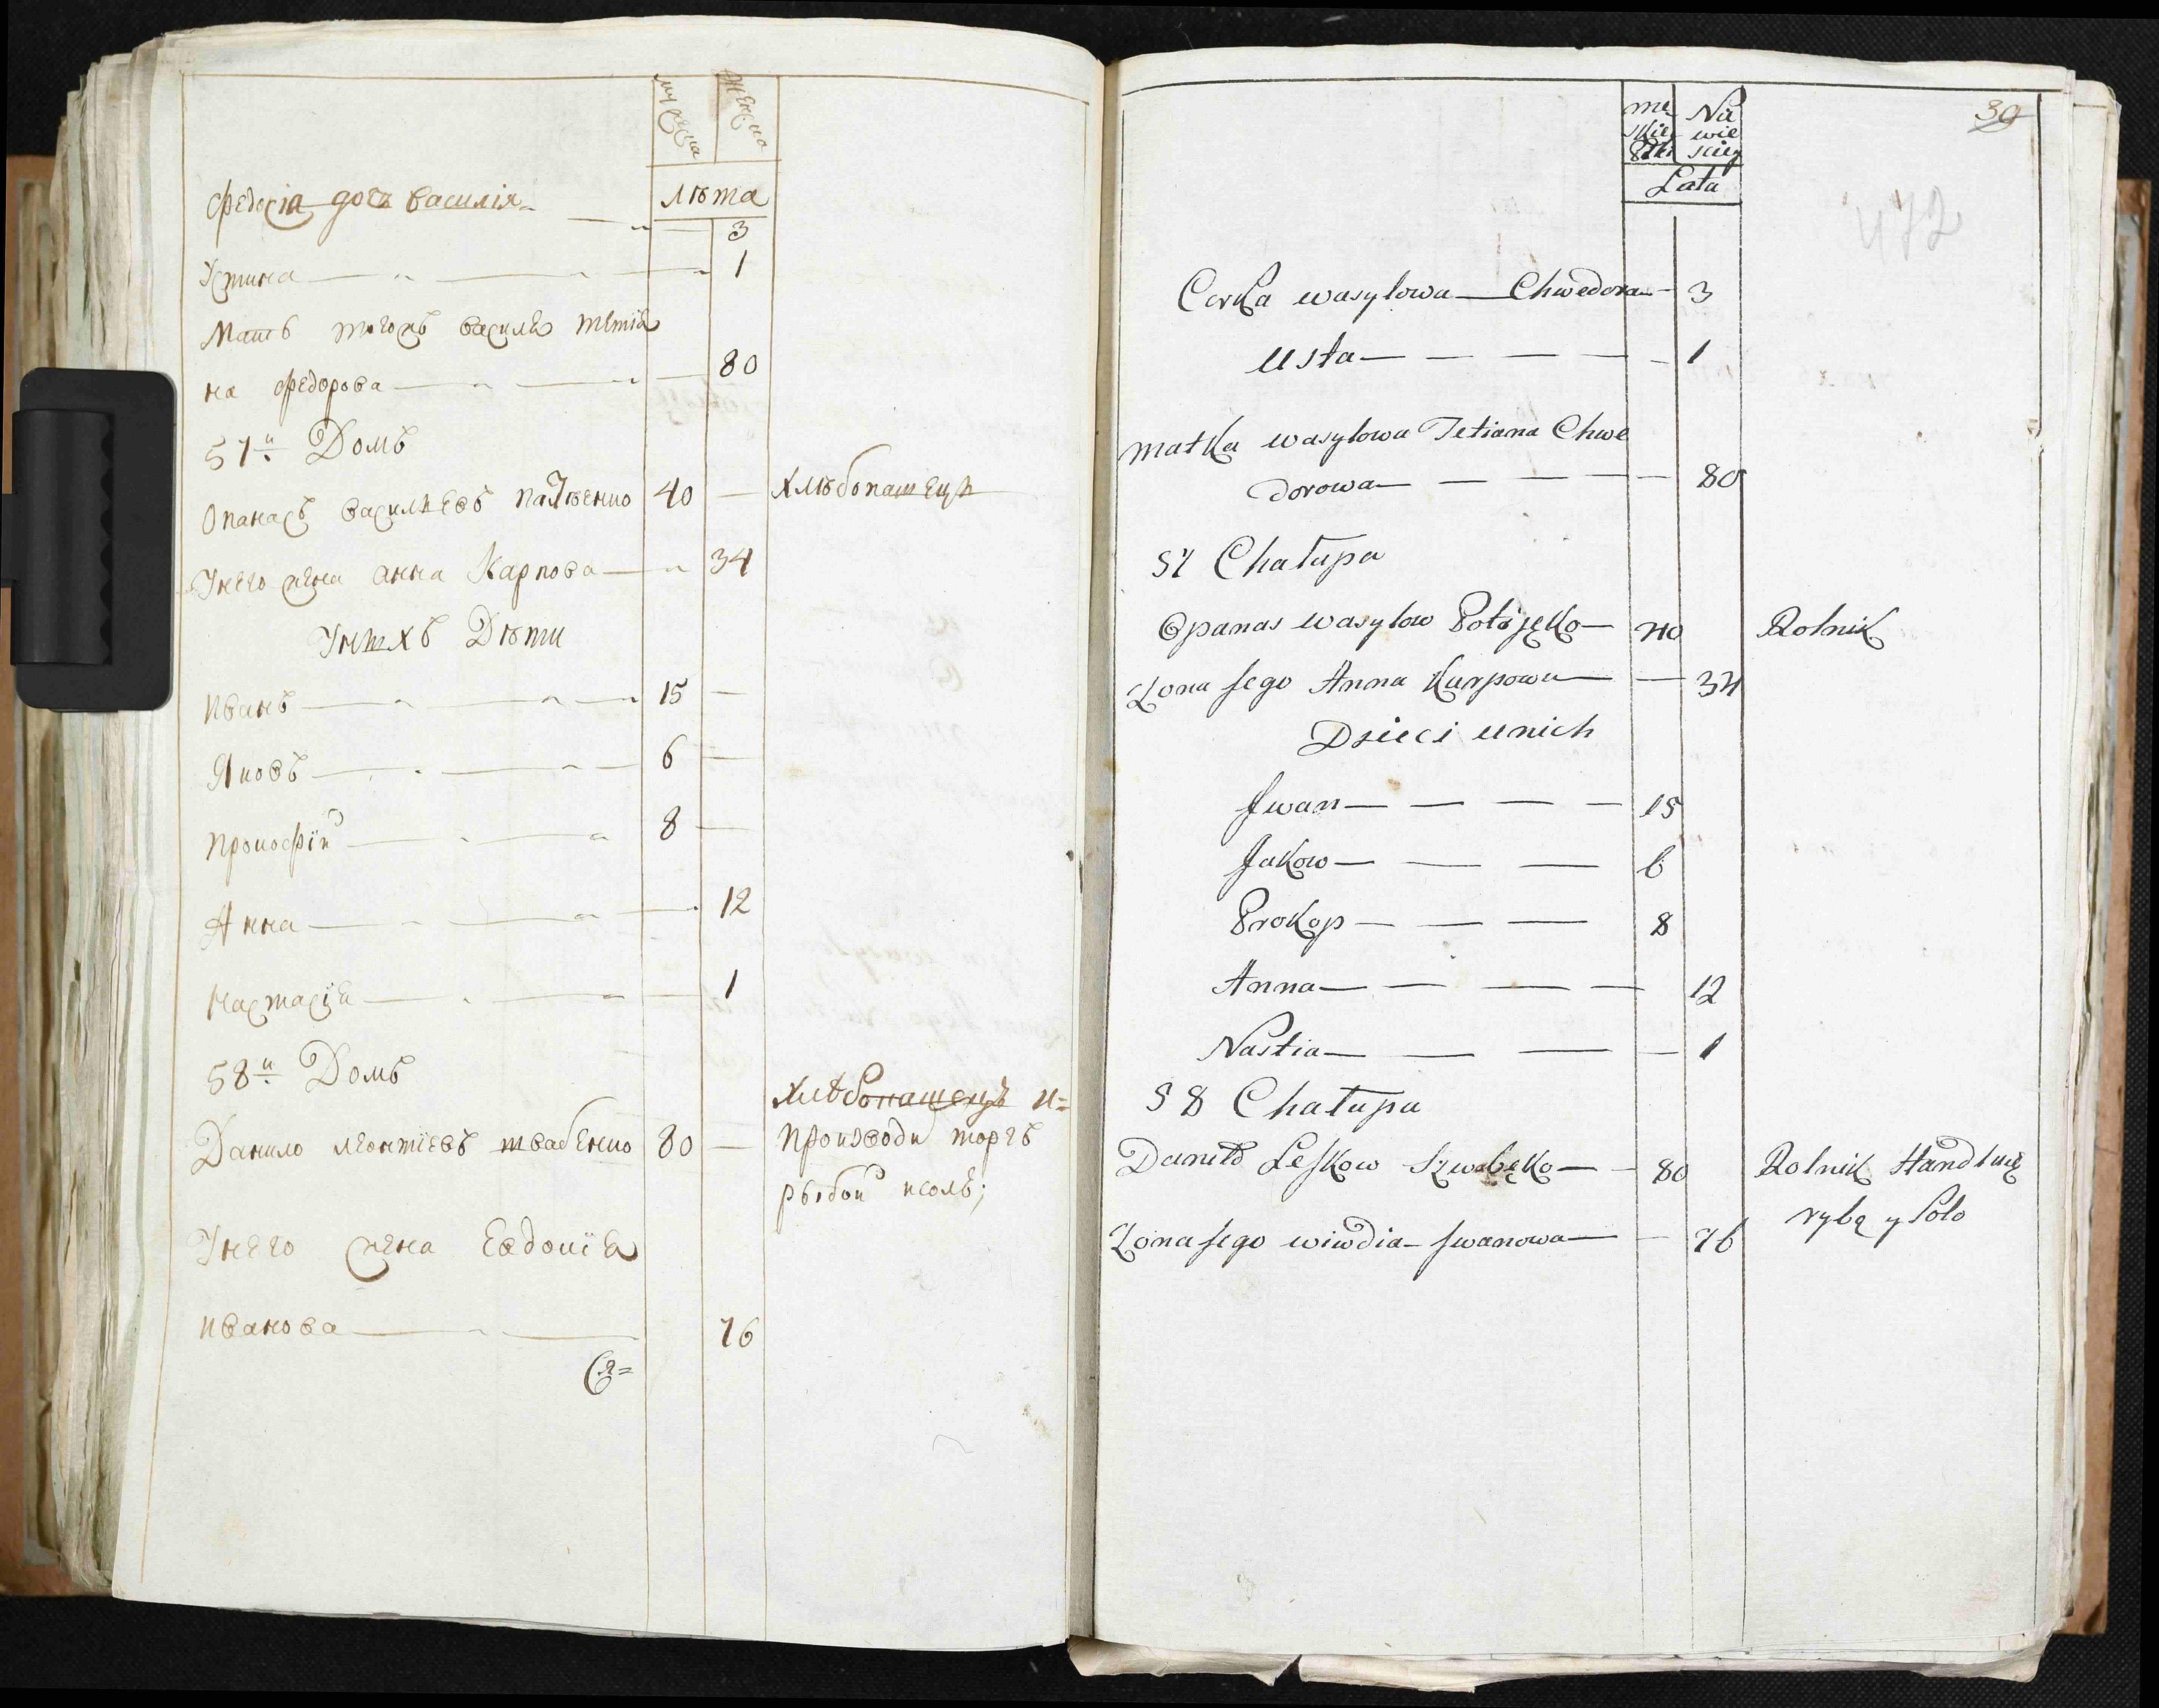 мужеска женска
лѣта
Федосія дочь василія 3
Устина 1
Мать тогожъ василя тетія
на Федорова 80
57й Домъ
Опанасъ васильевъ палѣенко 40 хлѣбопашецъ
Унего жена анна Карпова 34
Унихъ Дѣти
иванъ 15
Яковъ 6
прокофій 8
Анна 12
настасія 1
58й Домъ
хлѣбопашецъ и=
Данило леонтіевъ швабенко 80 производи торгъ
рыбои исолъ;
Унего жена Евдокія
иванова 76
39
472
Na
wie
skiey
Lata
Corka wasylowa Chwedora 3
Usta 1
Matka wasylowa Tetiana Chwe
dorowa 80
57 Chałupa
Opanas wasylow 40 Rolnik
Zona jego Anna Karpowa 34
Dzieci unich
Jwan 15
Jakow 6
Prokop 8
Anna 12
Nastia 1
58 Chałupa
Daniło Leskow Szwabęko 80 Rolnik Handluię
rybą y Solo
Zona jego wiwdia Jwanowa 76